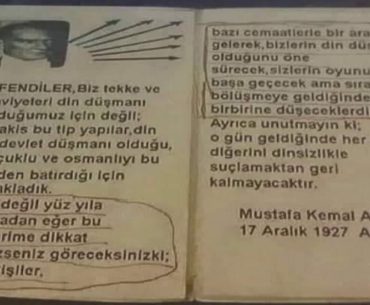 FENDİLER,Biz tekke ve
viyeleri din düşmanı
duğumuz için değil;
akis bu tip yapılar,din
devlet düşmanı olduğu,
çuklu ve osmanlıyı bu
den batırdığı için
akladık.
değil yüz yıla
adan eğer bu
rime dikkat
zseniz göreceksinizki;
işiler,
bazı cemaatlerle bir ara
gelerek,bizlerin din düş
olduğunu öne
sürecek,sizlerin oyunu
başa geçecek ama sıra
bölüşmeye geldiğinde
birbirine düşeceklerdi
Ayrıca unutmayın ki;
o gün geldiğinde her
diğerini dinsizlikle
suçlamaktan geri
kalmayacaktır.
Mustafa Kemal A
17 Aralık 1927 A